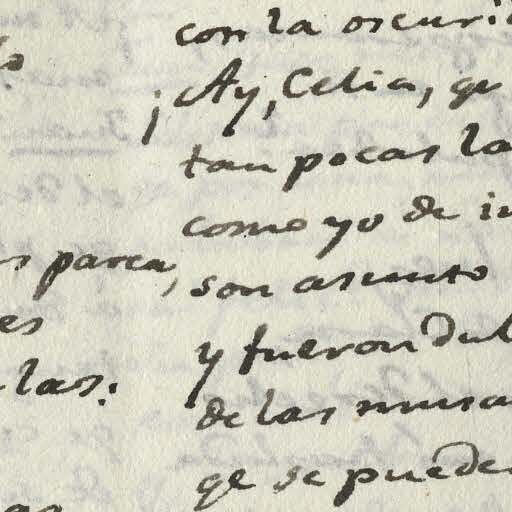 s parca,
es
las.
con la oscuri
¡Ay, Celia, qu
tan pocas la
como yo de in
son asunto
y fueron dul
de las musa
qe se puede